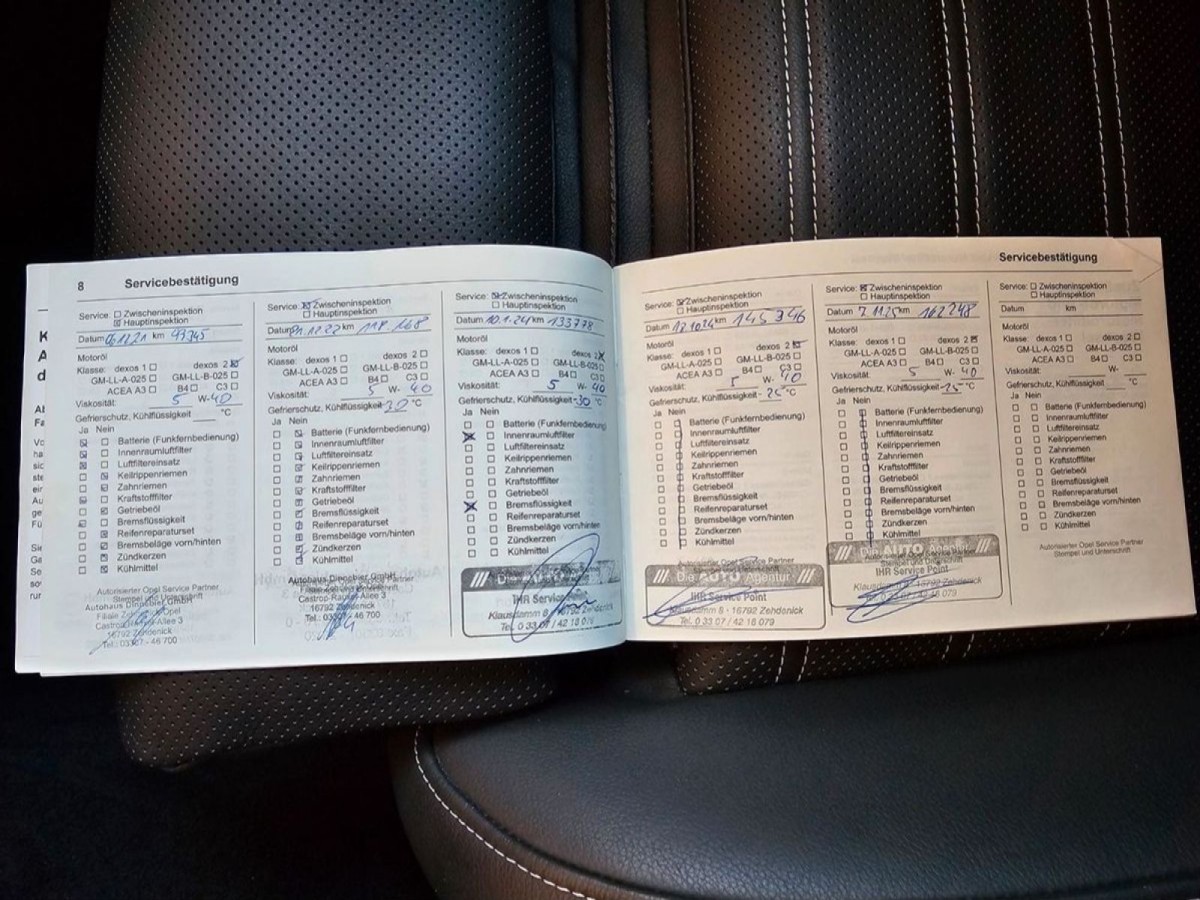 8 Servicebestätigung
Service: Zwischeninspektion
Hauptinspektion
Datum 06.12.21 km 93745
Motoröl
Klasse: dexos 1 dexos 2
GM-LL-A-025 GM-LL-B-025
ACEA A3 B4 C3
Viskosität: 5 W- 40
Gefrierschutz, Kühlflüssigkeit °C
Ja Nein
Batterie (Funkfernbedienung)
Innenraumluftfilter
Luftfiltereinsatz
Keilrippenriemen
Zahnriemen
Kraftstofffilter
Getriebeöl
Bremsflüssigkeit
Reifenreparaturset
Bremsbeläge vorn/hinten
Zündkerzen
Kühlmittel
Autorisierter Opel Service Partner
Stempel und Unterschrift
Autohaus Dinnebier GmbH
Filiale Opel
Castroper-Rauxel-Allee 3
16792 Zehdenick
Tel.: 03307 - 46 700
Service: Zwischeninspektion
Hauptinspektion
Datum 12.22 km 118 168
Motoröl
Klasse: dexos 1 dexos 2
GM-LL-A-025 GM-LL-B-025
ACEA A3 B4 C3
Viskosität: 5 W- 40
Gefrierschutz, Kühlflüssigkeit -30 °C
Ja Nein
Batterie (Funkfernbedienung)
Innenraumluftfilter
Luftfiltereinsatz
Keilrippenriemen
Zahnriemen
Kraftstofffilter
Getriebeöl
Bremsflüssigkeit
Reifenreparaturset
Bremsbeläge vorn/hinten
Zündkerzen
Kühlmittel
Autohaus Dinnebier GmbH
16792 Zehdenick
Service: Zwischeninspektion
Hauptinspektion
Datum 10.1.24 km 133778
Motoröl
Klasse: dexos 1 dexos 2
GM-LL-A-025 GM-LL-B-025
ACEA A3 B4 C3
Viskosität: 5 W- 40
Gefrierschutz, Kühlflüssigkeit -30 °C
Ja Nein
Batterie (Funkfernbedienung)
Innenraumluftfilter
Luftfiltereinsatz
Keilrippenriemen
Zahnriemen
Kraftstofffilter
Getriebeöl
Bremsflüssigkeit
Reifenreparaturset
Bremsbeläge vorn/hinten
Zündkerzen
Kühlmittel
Die AUTO Agentur
IHR Service Point
Klausdamm 8 16792 Zehdenick
Tel. 0 33 07 / 42 18 079
Servicebestätigung
Service: Zwischeninspektion
Hauptinspektion
Datum 12.10.24 km 145 346
Motoröl
Klasse: dexos 1 dexos 2
GM-LL-A-025 GM-LL-B-025
ACEA A3 B4 C3
Viskosität: 5 W- 40
Gefrierschutz, Kühlflüssigkeit -25 °C
Ja Nein
Batterie (Funkfernbedienung)
Innenraumluftfilter
Luftfiltereinsatz
Keilrippenriemen
Zahnriemen
Kraftstofffilter
Getriebeöl
Bremsflüssigkeit
Reifenreparaturset
Bremsbeläge vorn/hinten
Zündkerzen
Kühlmittel
Die AUTO Agentur
IHR Service Point
Klausdamm 8 · 16792 Zehdenick
Tel. 0 33 07 / 42 18 079
Service: Zwischeninspektion
Hauptinspektion
Datum 7.11.25 km 162248
Motoröl
Klasse: dexos 1 dexos 2
GM-LL-A-025 GM-LL-B-025
ACEA A3 B4 C3
Viskosität: 5 W- 40
Gefrierschutz, Kühlflüssigkeit -25 °C
Ja Nein
Batterie (Funkfernbedienung)
Innenraumluftfilter
Luftfiltereinsatz
Keilrippenriemen
Zahnriemen
Kraftstofffilter
Getriebeöl
Bremsflüssigkeit
Reifenreparaturset
Bremsbeläge vorn/hinten
Zündkerzen
Kühlmittel
Die AUTO Agentur
IHR Service Point
16792 Zehdenick
0 33 07 / 42 18 079
Service: Zwischeninspektion
Hauptinspektion
Datum km
Motoröl
Klasse: dexos 1 dexos 2
GM-LL-A-025 GM-LL-B-025
ACEA A3 B4 C3
Viskosität: W-
Gefrierschutz, Kühlflüssigkeit °C
Ja Nein
Batterie (Funkfernbedienung)
Innenraumluftfilter
Luftfiltereinsatz
Keilrippenriemen
Zahnriemen
Kraftstofffilter
Getriebeöl
Bremsflüssigkeit
Reifenreparaturset
Bremsbeläge vorn/hinten
Zündkerzen
Kühlmittel
Autorisierter Opel Service Partner
Stempel und Unterschrift